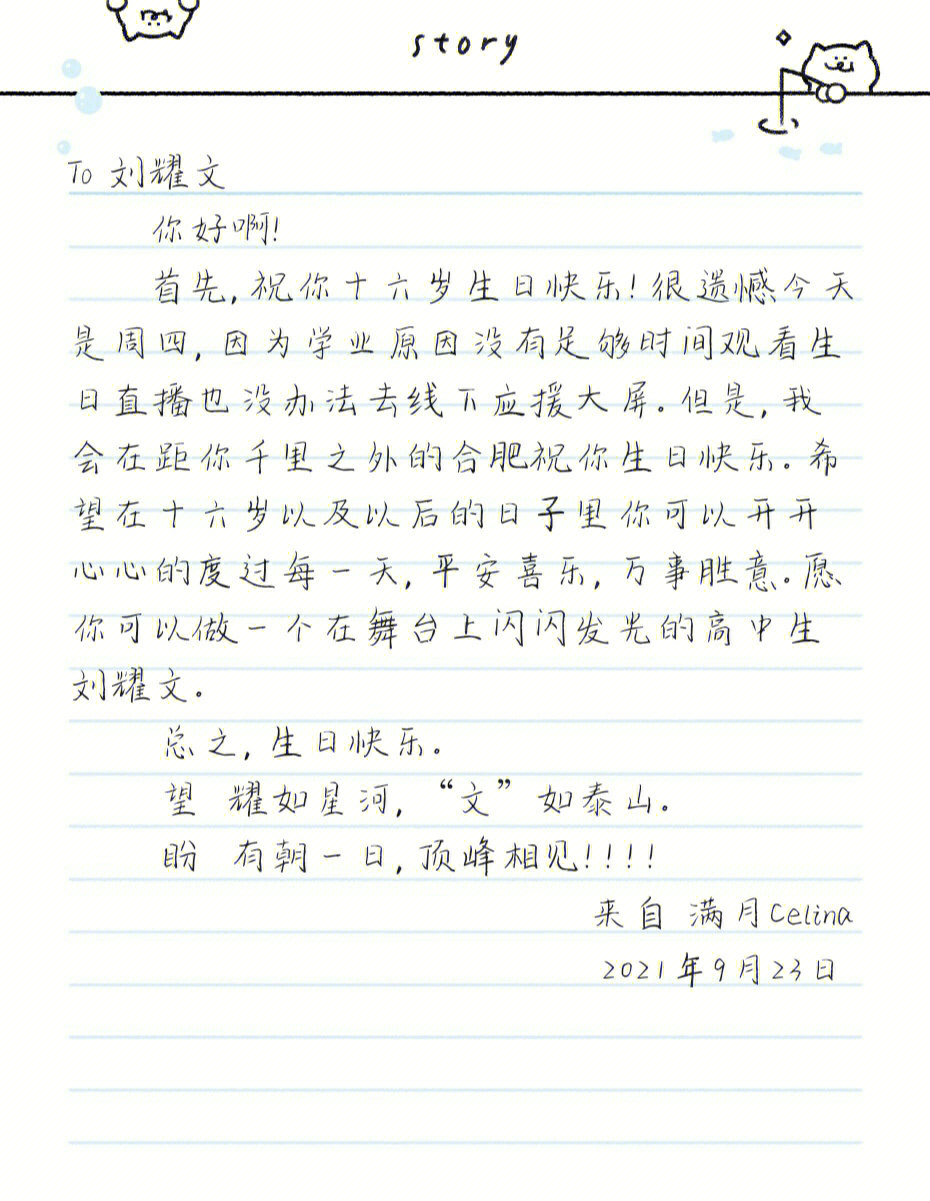 story
To 刘耀文
你好啊!
首先,祝你十六岁生日快乐!很遗憾今天
是周四,因为学业原因没有足够时间观看生
日直播也没办法去线下应援大屏。但是,我
会在距你千里之外的合肥祝你生日快乐。希
望在十六岁以及以后的日子里你可以开开
心心的度过每一天,平安喜乐,万事胜意。愿
你可以做一个在舞台上闪闪发光的高中生
刘耀文。
总之,生日快乐。
望 耀如星河,“文”如泰山。
盼 有朝一日,顶峰相见!!!!
来自 满月Celina
2021年9月23日